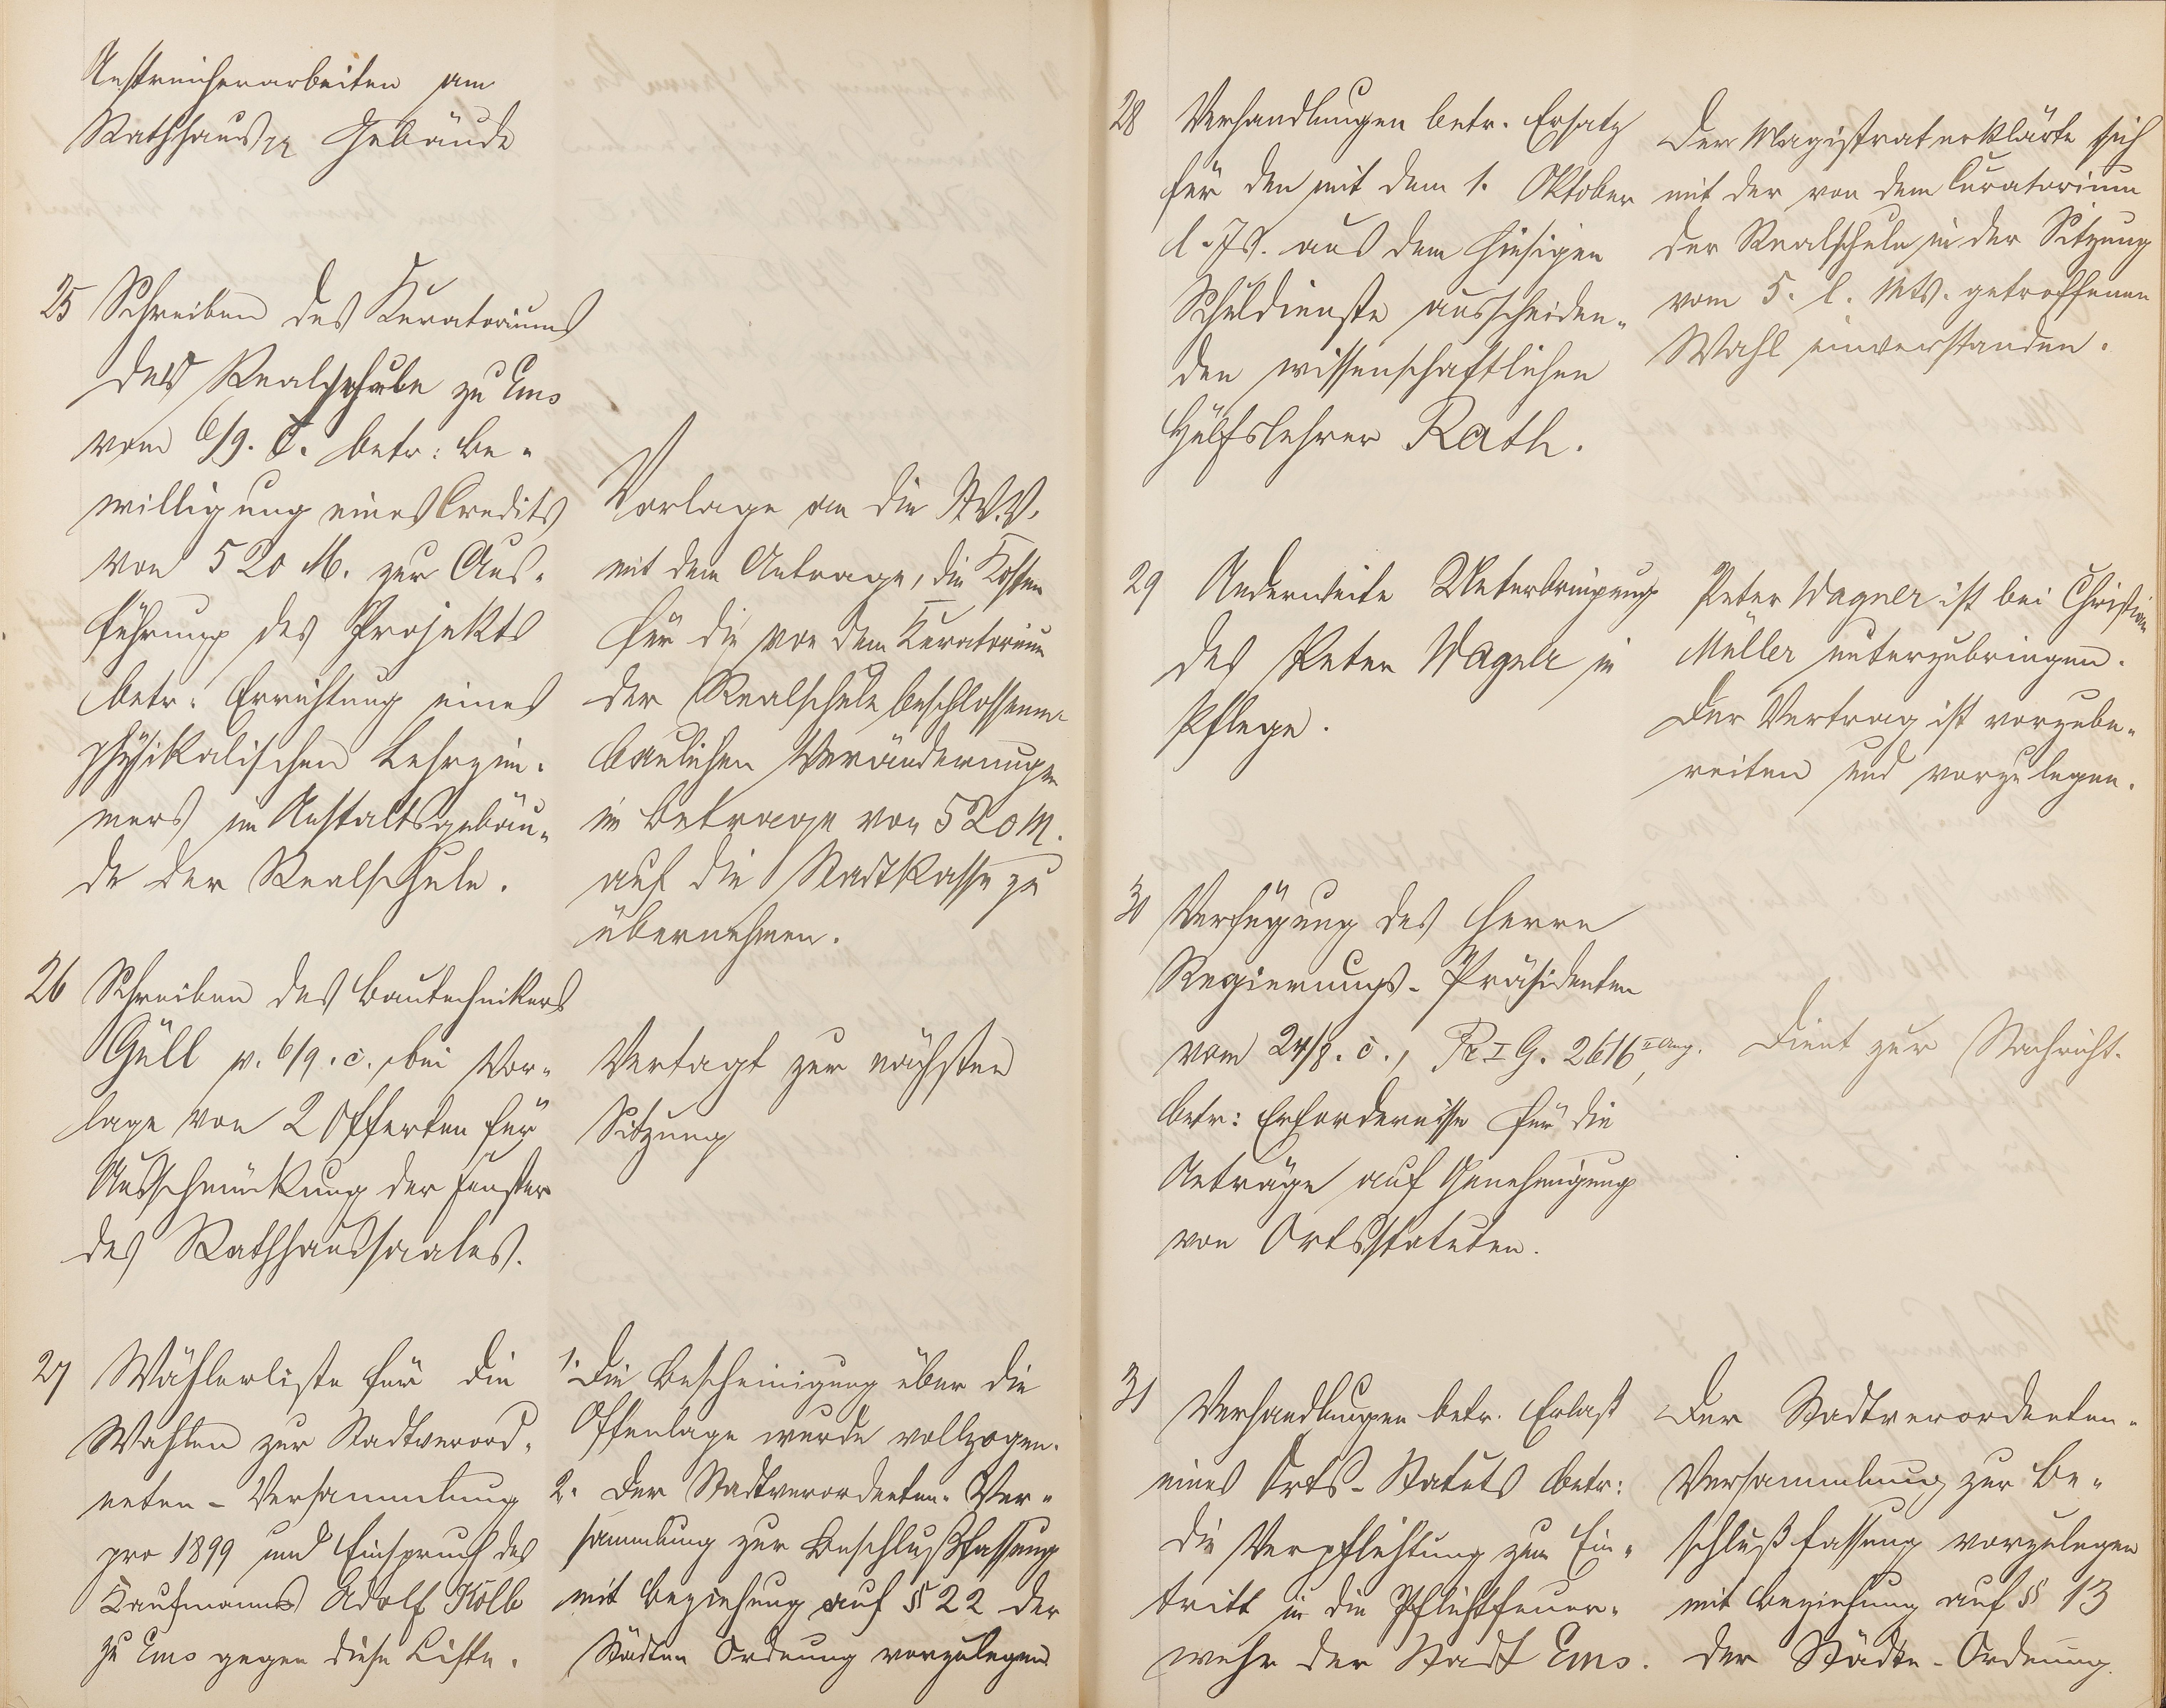 Anstreicherarbeiten am
Rathhaus Gebäude
25 Schreiben des Kuratoriums
der Realschule zu Ems
vom 6/9. c. betr: Be-
willigung eines Credits
von 520 M. zur Aus-
führung des Projekts
betr: Errichtung eines
physikalischen Lehrzim-
mers im Anstaltsgebäu-
de der Realschule.
Vorlage an die St.V.V.
mit dem Antrage, die Kosten
für die von dem Kuratorium
der Realschule beschlossenen
baulichen Veränderungen
im Betrage von 520 M.
auf die Stadtkasse zu
übernehmen.
26 Schreiben des Bautechnikers
Güll v. 6/9. c., bei Vor-
lage von 2 Offerten für
Ausschmückung der Fenster
des Rathhaussaales.
Vertagt zur nächsten
Sitzung
27 Wählerliste für die
Wahlen zur Stadtverord-
neten-Versammlung
pro 1899 und Einspruch des
Kaufmanns Adolf Kolb
zu Ems gegen diese Liste.
1. Die Bescheinigung über die
Offenlage wurde vollzogen.
2. Der Stadtverordneten-Ver-
sammlung zur Beschlußfassung
mit Beziehung auf § 22 der
Städten Ordnung vorzulegen
28 Verhandlungen betr. Ersatz
für den mit dem 1. Oktober
l. Js. aus dem hiesigen
Schuldienste ausscheiden-
den wissenschaftlichen
Hülfslehrer Rath.
Der Magistrat erklärte sich
mit der von dem Curatorium
der Realschule in der Sitzung
vom 5. l. Mts. getroffenen
Wahl einverstanden.
29 Anderweite Unterbringung
des Peter Wagner in
Pflege.
Peter Wagner ist bei Christian
Müller unterzubringen.
Der Vertrag ist vorzube-
reiten und vorzulegen.
30 Verfügung des Herrn
Regierungs-Präsidenten
vom 24/8. c., Pr I G. 2616 II Ang.,
betr: Erfordernisse für die
Anträge auf Genehmigung
von Ortsstatuten.
Dient zur Nachricht.
31 Verhandlungen betr. Erlaß
eines Orts-Statuts betr:
die Verpflichtung zum Ein-
tritt in die Pflichtfeuer-
wehr der Stadt Ems.
Der Stadtverordneten-
Versammlung zur Be-
schlußfassung vorzulegen
mit Beziehung auf § 13
der Städte-Ordnung.